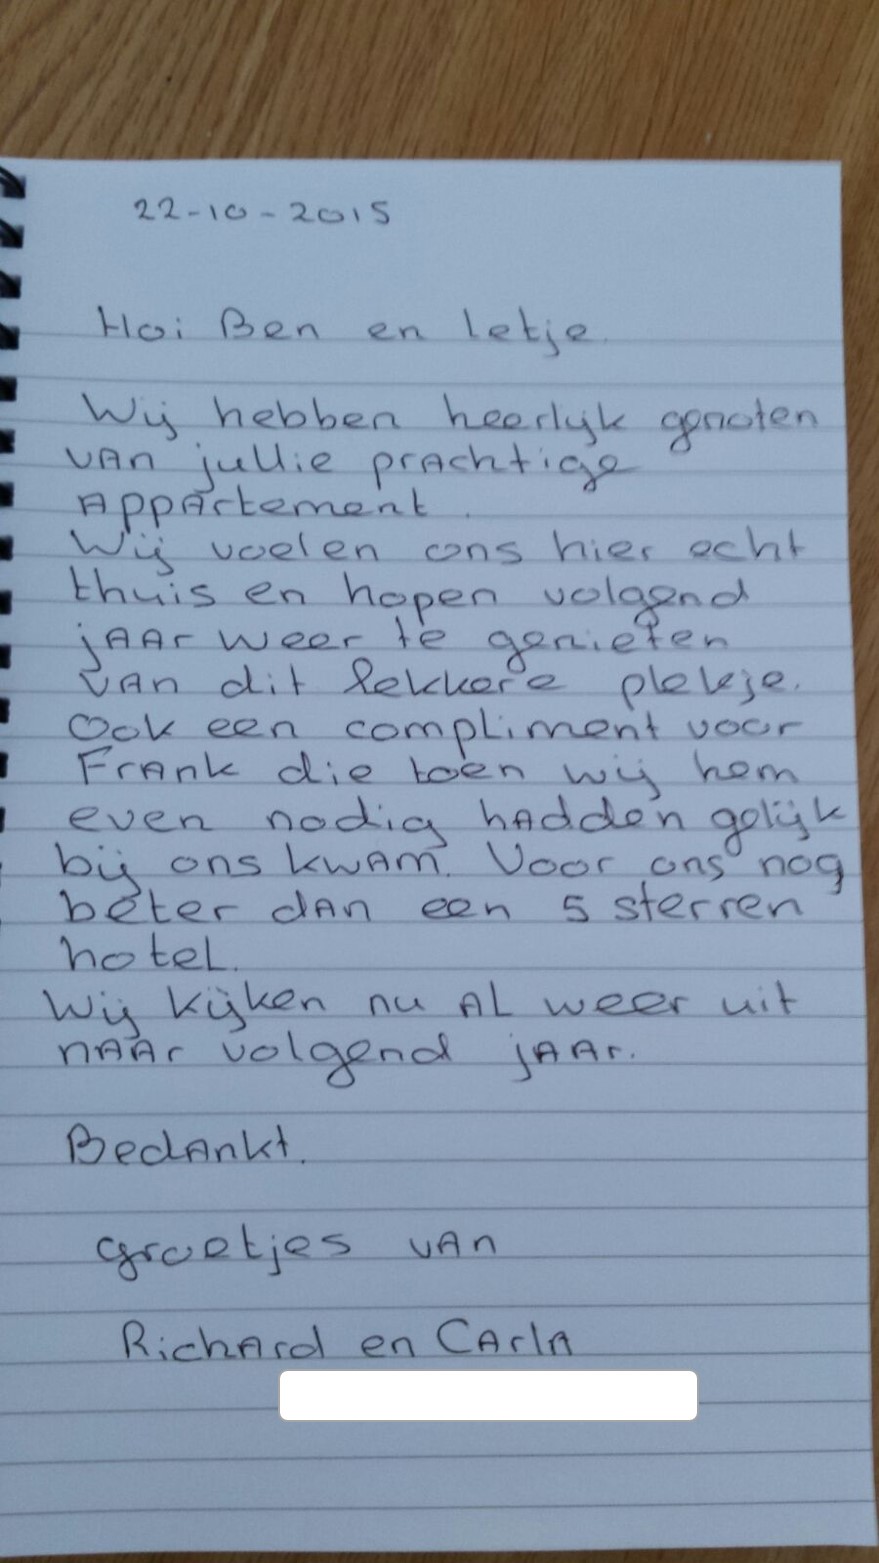 22-10-2015
Hoi Ben en Letje.
Wij hebben heerlijk genoten
van jullie prachtige
Appartement.
Wij voelen ons hier echt
thuis en hopen volgend
jaar weer te genieten
van dit lekkere plekje.
Ook een compliment voor
Frank die toen wij hem
even nodig hadden gelijk
bij ons kwam. Voor ons nog
beter dan een 5 sterren
hotel.
Wij kijken nu al weer uit
naar volgend jaar.
Bedankt.
groetjes van
Richard en Carla